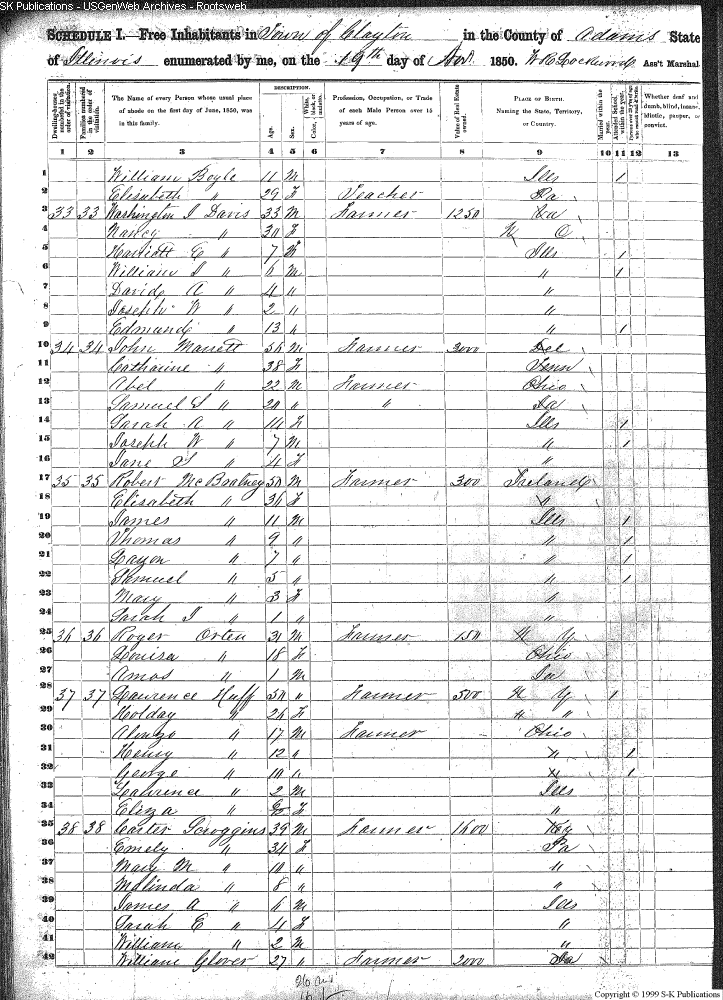 SK Publications - USGenWeb Archives - Rootsweb
SCHEDULE I.—Free Inhabitants in Town of Clayton in the County of Adams State
of Illinois enumerated by me, on the 19th day of Nov. 1850. Ass't Marshal
Dwelling-houses numbered in the order of visitation. Families numbered in the order of visitation. The Name of every Person whose usual place of abode on the first day of June, 1850, was in this family. DESCRIPTION. Age. Sex. Color, White, black, or mulatto. Profession, Occupation, or Trade of each Male Person over 15 years of age. Value of Real Estate owned. PLACE OF BIRTH. Naming the State, Territory, or Country. Married within the year. Attended School within the year. Whether deaf and dumb, blind, insane, idiotic, pauper, or convict.
1 2 3 4 5 6 7 8 9 10 11 12 13
1 William Boyle 11 M Ills 1
2 Elisabeth " 29 F Teacher Pa
3 33 33 Washington I Davis 33 M Farmer 1250
4 Nancy " 30 F N C
5 Harriott E " 7 F Ills 1
6 William I " 6 M " 1
7 David A " 4 " "
8 Joseph W " 2 " "
9 Edmund " 13 " " 1
10 34 34 John Marrett 56 M Farmer 3000 Del
11 Catharine " 38 F Tenn
12 Abel " 22 M Farmer Ohio
13 Samuel S " 20 " " Ia
14 Sarah A " 14 F Ills 1
15 Joseph W " 7 M " 1
16 Jane S " 4 F "
17 35 35 Robert McBratney 50 M Farmer 300 Ireland
18 Elisabeth " 36 F "
19 James " 11 M Ills 1
20 Thomas " 9 " " 1
21 " 7 " " 1
22 Samuel " 5 " " 1
23 Mary " 3 F "
24 Sarah I " 1 " "
25 36 36 Roger Orten 31 M Farmer 150 N Y
26 Louisa " 18 F Ohio
27 Amos " 1 M Ia
28 37 37 Laurence Huff 50 " Farmer 500 N Y 1
29 Holday " 26 F " "
30 Alonzo " 17 M Farmer Ohio
31 Henry " 12 " " 1
32 George " 10 " " 1
33 Lawrence " 2 M Ills
34 Eliza " F "
35 38 38 Carter Scroggins 39 M Farmer 1600 Ky
36 Emely " 34 F
37 Mary M " 10 " "
38 Malinda " 8 " "
39 James A " 6 M Ills
40 Sarah E " 4 F "
41 William " 2 M "
42 William Glover 27 " Farmer 2000 Ia
Copyright © 1999 S-K Publications